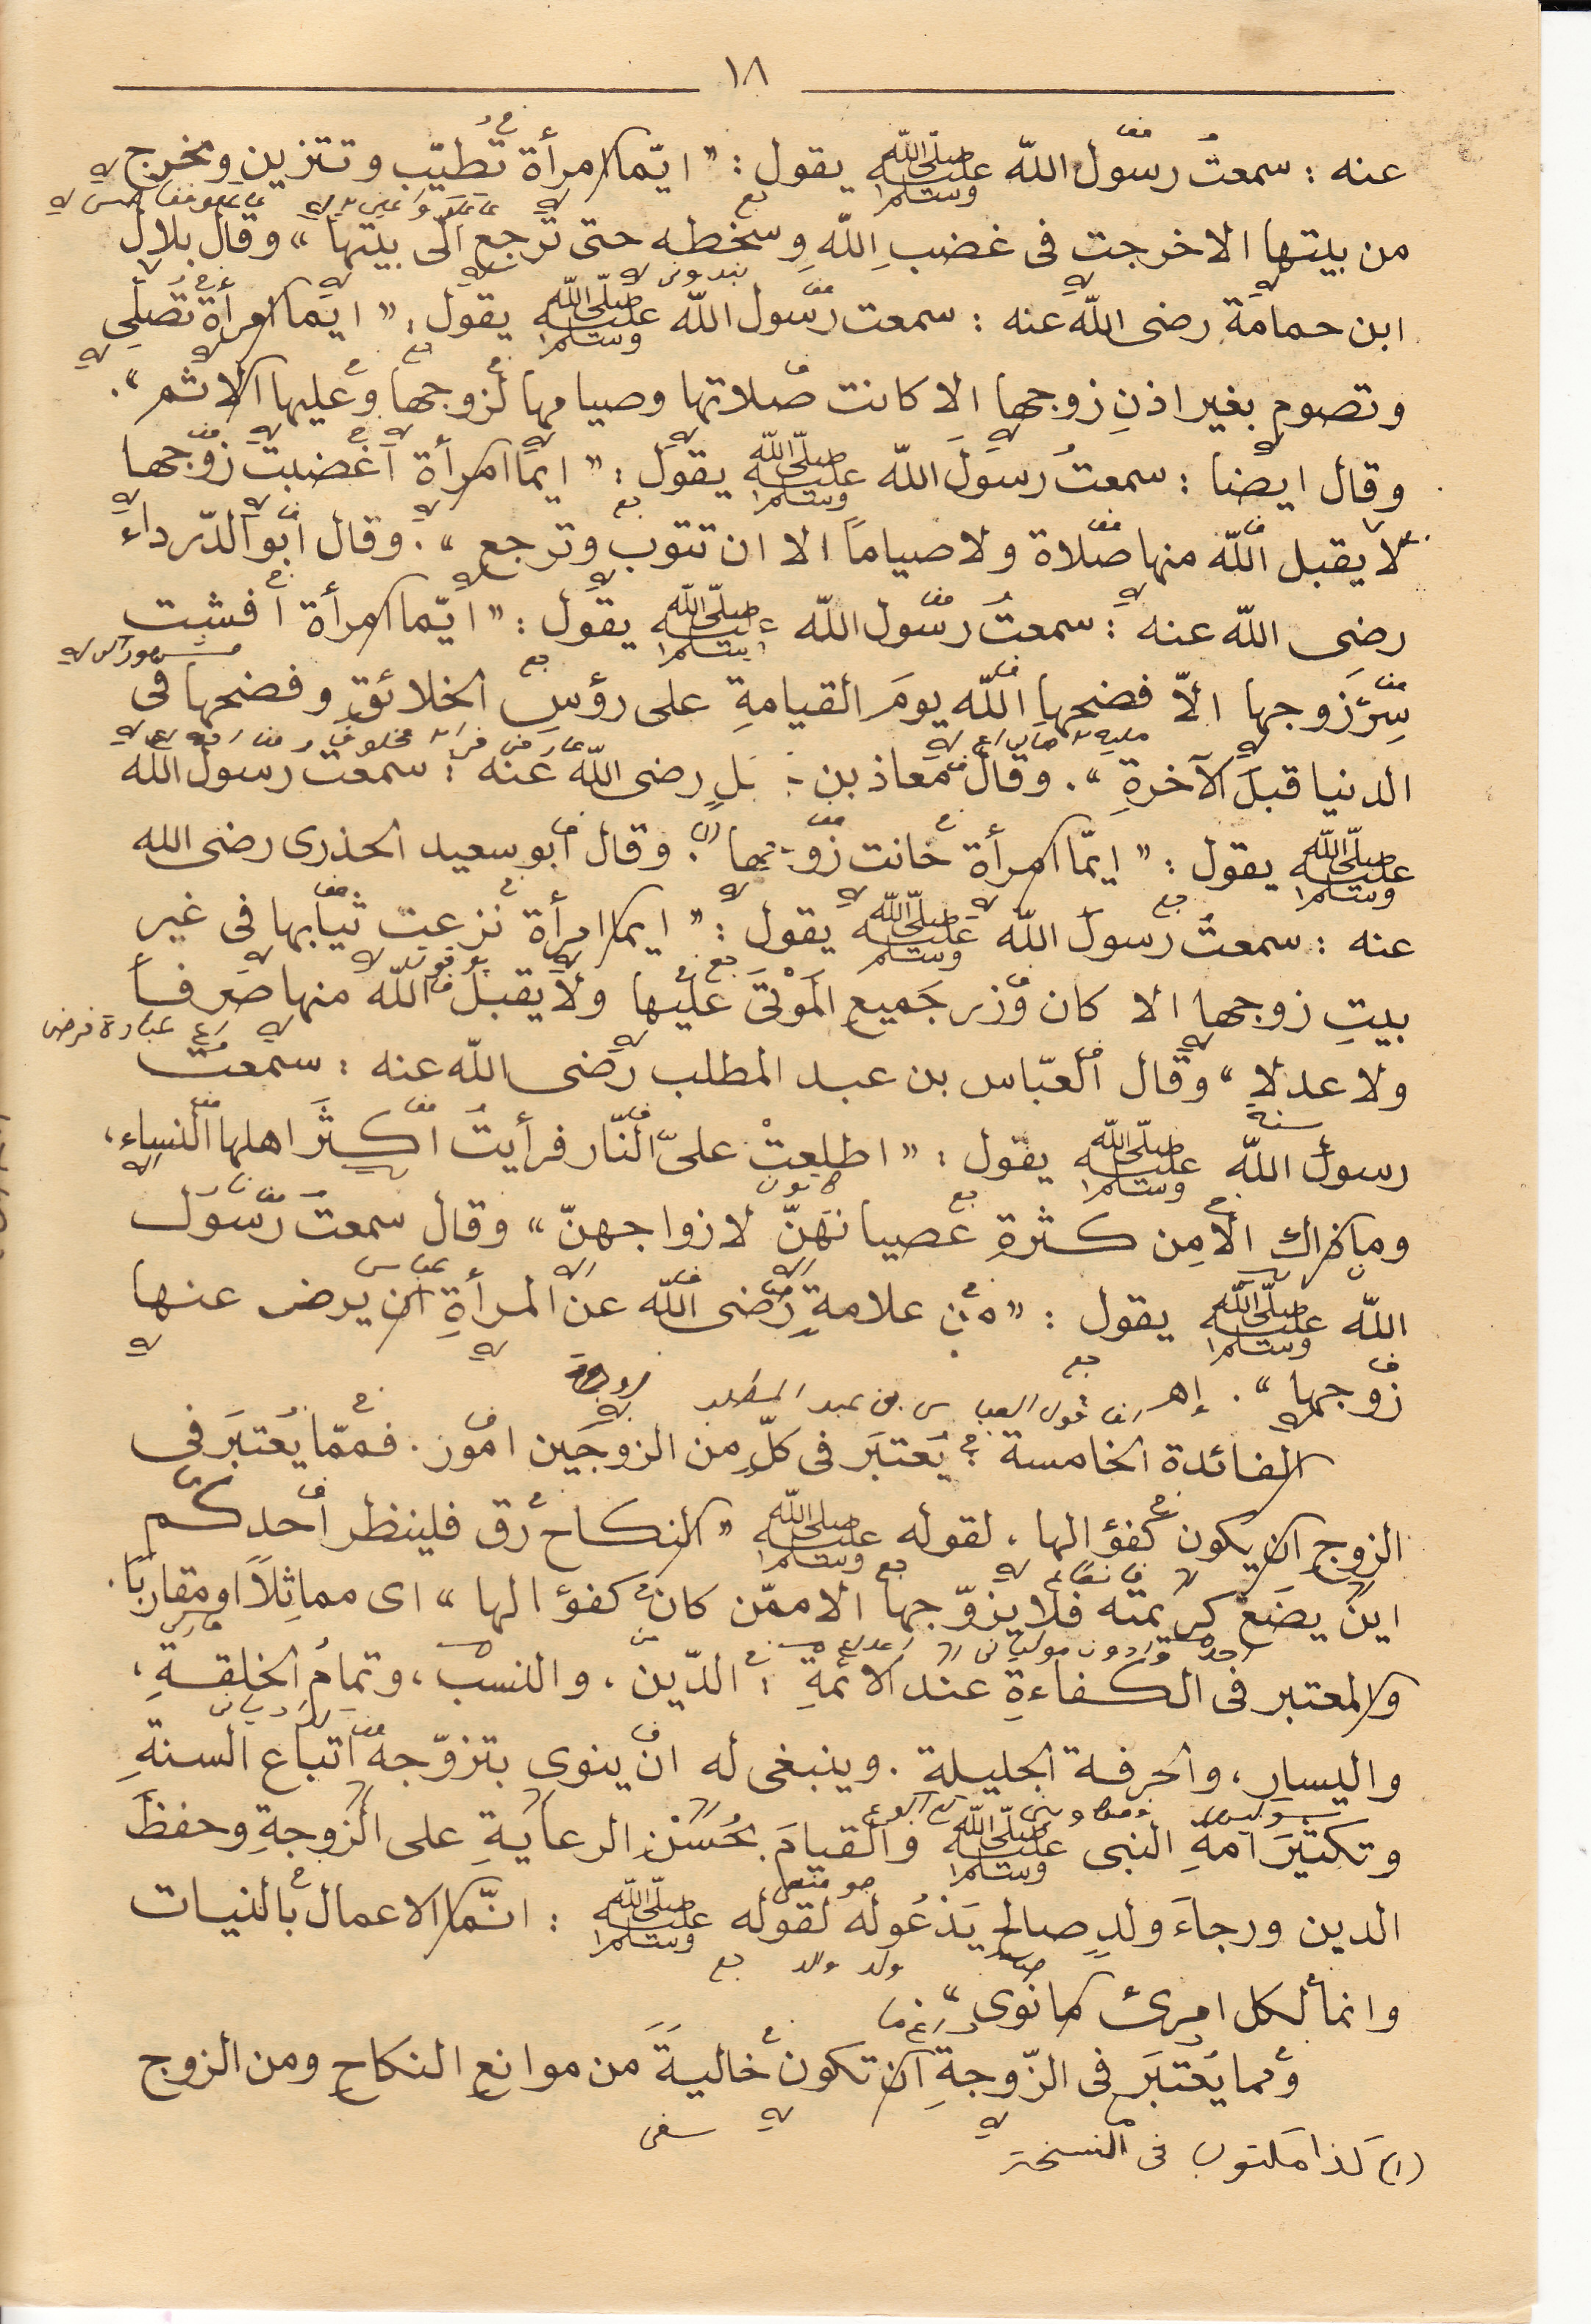 ١٨
عنه : سمعتُ رسول الله صلى الله عليه وسلم يقول : " ايّما امرأة تطيّب وتتزين وتخرج
من بيتها الا خرجت فى غضبِ اللهِ وسخطه حتى ترجع الى بيتها " وقال بلال
ابن حمامة رضى الله عنه : سمعت رسول الله صلى الله عليه وسلم يقول : " ايما امرأة تصلى
وتصوم بغير اذنِ زوجها الا كانت صلاتها وصيامها لزوجها وعليها الاثم " .
وقال ايضا : سمعتُ رسولَ الله صلى الله عليه وسلم يقول : " ايما امرأة اغضبت زوجها
لا يقبل الله منها صلاة ولا صياماً الا ان تتوب وترجع " . وقال ابو الدّرداء
رضى الله عنه : سمعتُ رسول الله صلى الله عليه وسلم يقول : " ايّما امرأة أفشت
سِرَّ زوجها الاّ فضحها الله يومَ القيامةِ على رؤسِ الخلائقِ وفضحها فى
الدنيا قبلَ الآخرةِ " . وقال معاذ بن رضى الله عنه : سمعت رسول الله
صلى الله عليه وسلم يقول : " ايمّا امرأة خانت زوجها (١) " . وقال ابو سعيد الخذرى رضى الله
عنه : سمعتُ رسولَ الله صلى الله عليه وسلم يقول : " ايما امرأة نزعت ثيابها فى غير
بيتِ زوجها الا كان وزر جَميعِ المَوْتىَ عليها ولا يقبلُ الله منها صرفا
ولا عدلا " وقال العبّاس بن عبد المطلب رضى الله عنه : سمعت
رسولَ الله صلى الله عليه وسلم يقول : " اطلعتْ علىّ النّار فرأيتُ اكثَرَ اهلها النساء ،
وما ذاك الا مِن كثرةِ عصيانهَنّ لازواجهنّ " وقال سمعتُ رسول
الله صلى الله عليه وسلم يقول : " من علامةِ رضى الله عن المرأةِ ان يرضى عنها
زوجها " . إهـ
الفائدة الخامسة : يُعتبَر فى كلٍّ من الزوجَين امور . فممّا يُعتبَر فى
الزوجِ ان يكون كفؤا لها ، لقوله صلى الله عليه وسلم " النكاح رق فلينظر أحدكم
اين يضَعْ كريمته فلا يزوّجها الا ممّن كان كفؤا لها " اى مماثِلاً او مقاربًا .
والمعتبر فى الكفاءةِ عند الائمةِ : الدّين ، والنسب ، وتمامُ الخلقةِ ،
واليسارِ ، والحرفة الجليلة . وينبغى له ان ينوى بتزوّجه اتباع السنةِ
وتكثيَر امةِ النبى صلى الله عليه وسلم والقيامَ بحُسْنِ الرعايةِ على الزوجةِ وحفظَ
الدين ورجاءَ ولدٍ صالحٍ يَدْعُو له لقوله صلى الله عليه وسلم : انّما الاعمال بالنيات
وانما لكل امرئ ما نوى "
ومما يُعْتبَر فى الزّوجةِ ان تكون خاليةً من موانعِ النكاحِ ومن الزوج
(١) كذا مكتوب فى النسخة